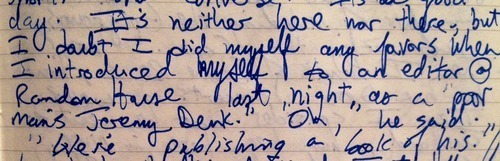 day. It's neither here nor there, but
I doubt I did myself any favors when
I introduced myself to an editor @
Random House last night as a "poor
mans Jeremy Denk." "Oh," he said.
"We're publishing a book of his."